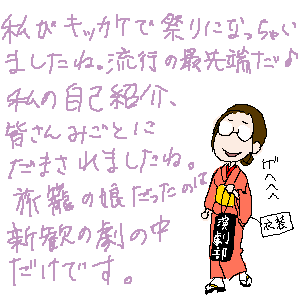 私がキッカケで祭りになっちゃい
ましたね。流行の最先端だよ
私の自己紹介、
皆さんみごとに
だまされましたね。
旅籠の娘だったのは
新歓の劇の中
だけです。
げへへへ
衣装
演劇部